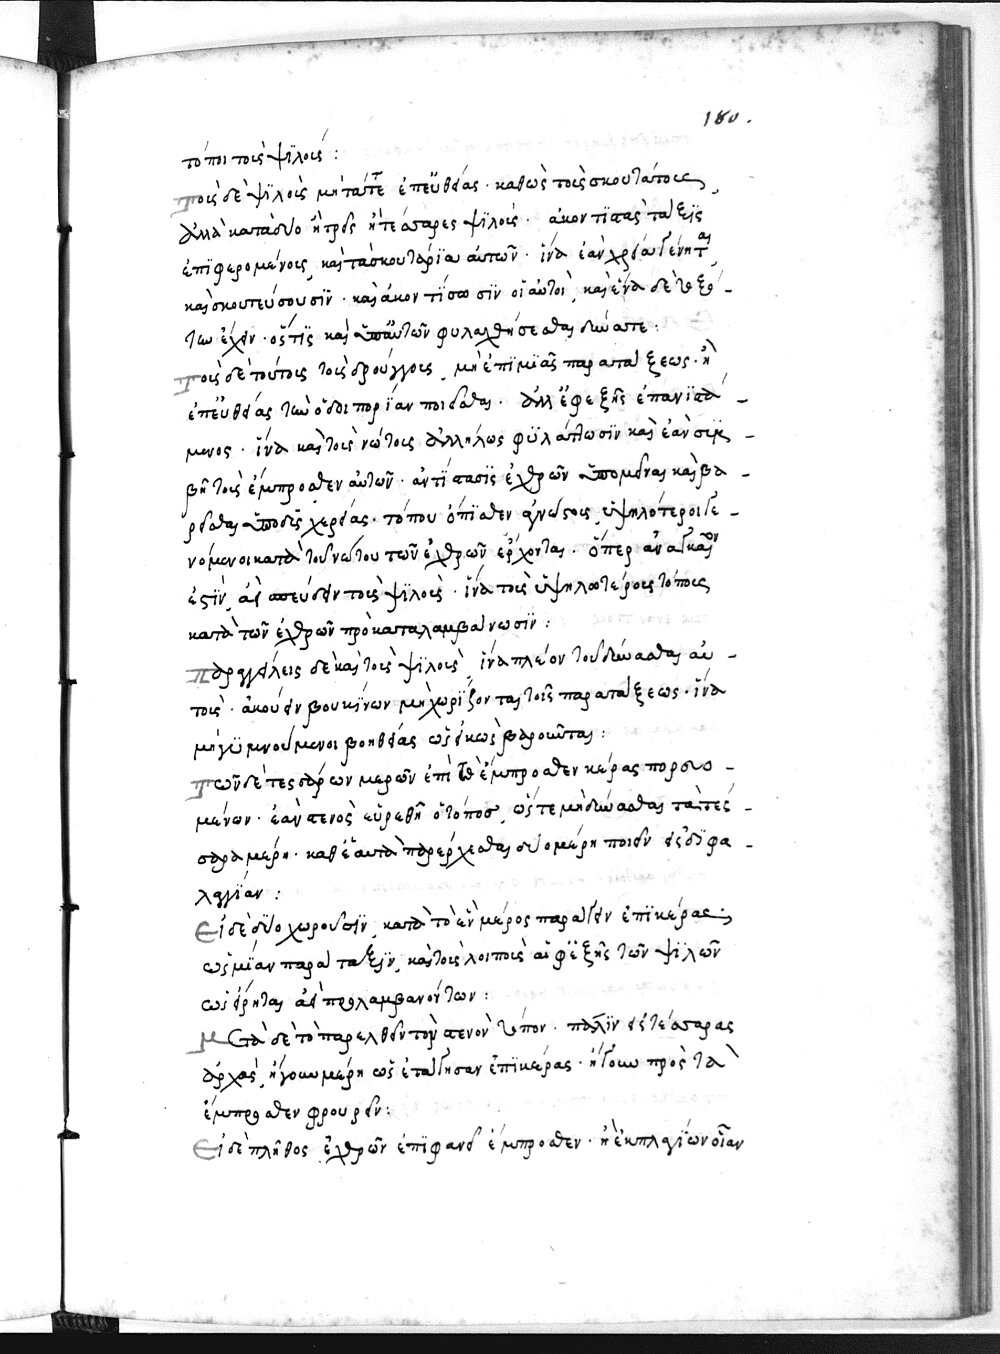 180.
τόποι τοῖς ψϊλοῖς :
Τοὺς δὲ ψϊλοὺς μὴ τάττε ἐπ' εὐθείας · καθὼς τοὺς σκουτάτους,
ἀλλὰ κατὰ δύο ἢ τρεῖς ἢ τέσσαρες ψϊλοὺς · ἀκοντϊστὰς τάξϊς
ἐπϊφερομένους, καὶ τὰ σκουτάρϊα αὐτῶν · ἵνα ἐὰν χρεία γένηται,
καὶ σκουτεύσουσϊν · καὶ ἀκοντίσωσϊν οἱ αὐτοί, καὶ ἕνα δὲ τοξό-
την ἔχειν · ὅστϊς καὶ ὑπ' αὐτῶν φυλαχθήσεσθαι δύναται :
Τοὺς δὲ τούτοις τοῖς δρούγγοις, μὴ ἐπὶ μϊᾶς παρατάξεως · ἢ
ἐπ' εὐθείας τὴν ὁδοιπορίαν ποιεῖσθαι · ἀλλ' ἐφεξῆς ἐπανϊστά-
μενος · ἵνα καὶ τοῖς νώτοις ἀλλήλως φϋλάττωσϊν καὶ ἐὰν συμ-
βῇ τοῖς ἔμπροσθεν αὐτῶν · ἀντίστασϊς ἐχθρῶν ὑπομεῖναι καὶ βα-
ρεῖσθαι ὑπὸ δυσχερείας · τόπου ὄπϊσθεν ὑψηλότεροι γε-
νόμενοι κατὰ τοῦ νώτου τῶν ἐχθρῶν ἔρχονται · ὅπερ ἀναγκαῖον
ἐστϊν, ἀεὶ σπεύδειν τοὺς ψϊλοὺς · ἵνα τοὺς ὑψηλοτέρους τόπους
κατὰ τῶν ἐχθρῶν προκαταλαμβάνωσϊν :
Παραγγέλεις δὲ καὶ τοὺς ψϊλούς, ἵνα πλέον τοῦ δύνασθαι αὐ-
τοὺς · ἀκούειν βουκίνων μὴ χωρίζονται τοῖς παρατάξεως · ἵνα
μὴ γϋμνούμενοι βοηθείας ὡς εἰκὼς βαροῦνται :
Τῶν δὲ τεσσάρων μερῶν ἐπὶ τὸ ἔμπροσθεν κέρας πορευο-
μένων · ἐὰν στενὸς εὑρεθῇ ὁ τόπος, ὥστε μὴ δύνασθαι τὰ τέσ-
σαρα μέρη · καθ' ἑαυτὰ παρέρχεσθαι δύο μέρη ποιεῖν εἰς δϊφα-
λαγγίαν :
Εἰ δὲ δϋο χωροῦσϊν, κατὰ τὸ ἓν μέρος παράγειν ἐπϊκέρας ;
ὡς μίαν παράταξϊν, καὶ τοὺς λοιποὺς ἀφ' ἑξῆς τῶν ψϊλῶν
ὡς εἴρηται ἀεὶ προλαμβανόντων :
Μετὰ δὲ τὸ παρελθεῖν τὸν στενὸν τόπον · πάλϊν εἰς τέσσαρας
ἀρχάς, ἤγουν μέρη ὡς ἐτάγησαν ἐπϊκέρας · ἤγουν πρὸς τὰ
ἔμπροσθεν φρουρεῖν :
Εἰ δὲ πλῆθος ἐχθρῶν ἐπϊφανεῖ ἔμπροσθεν · ἢ ἐκ πλαγίων οἵαν